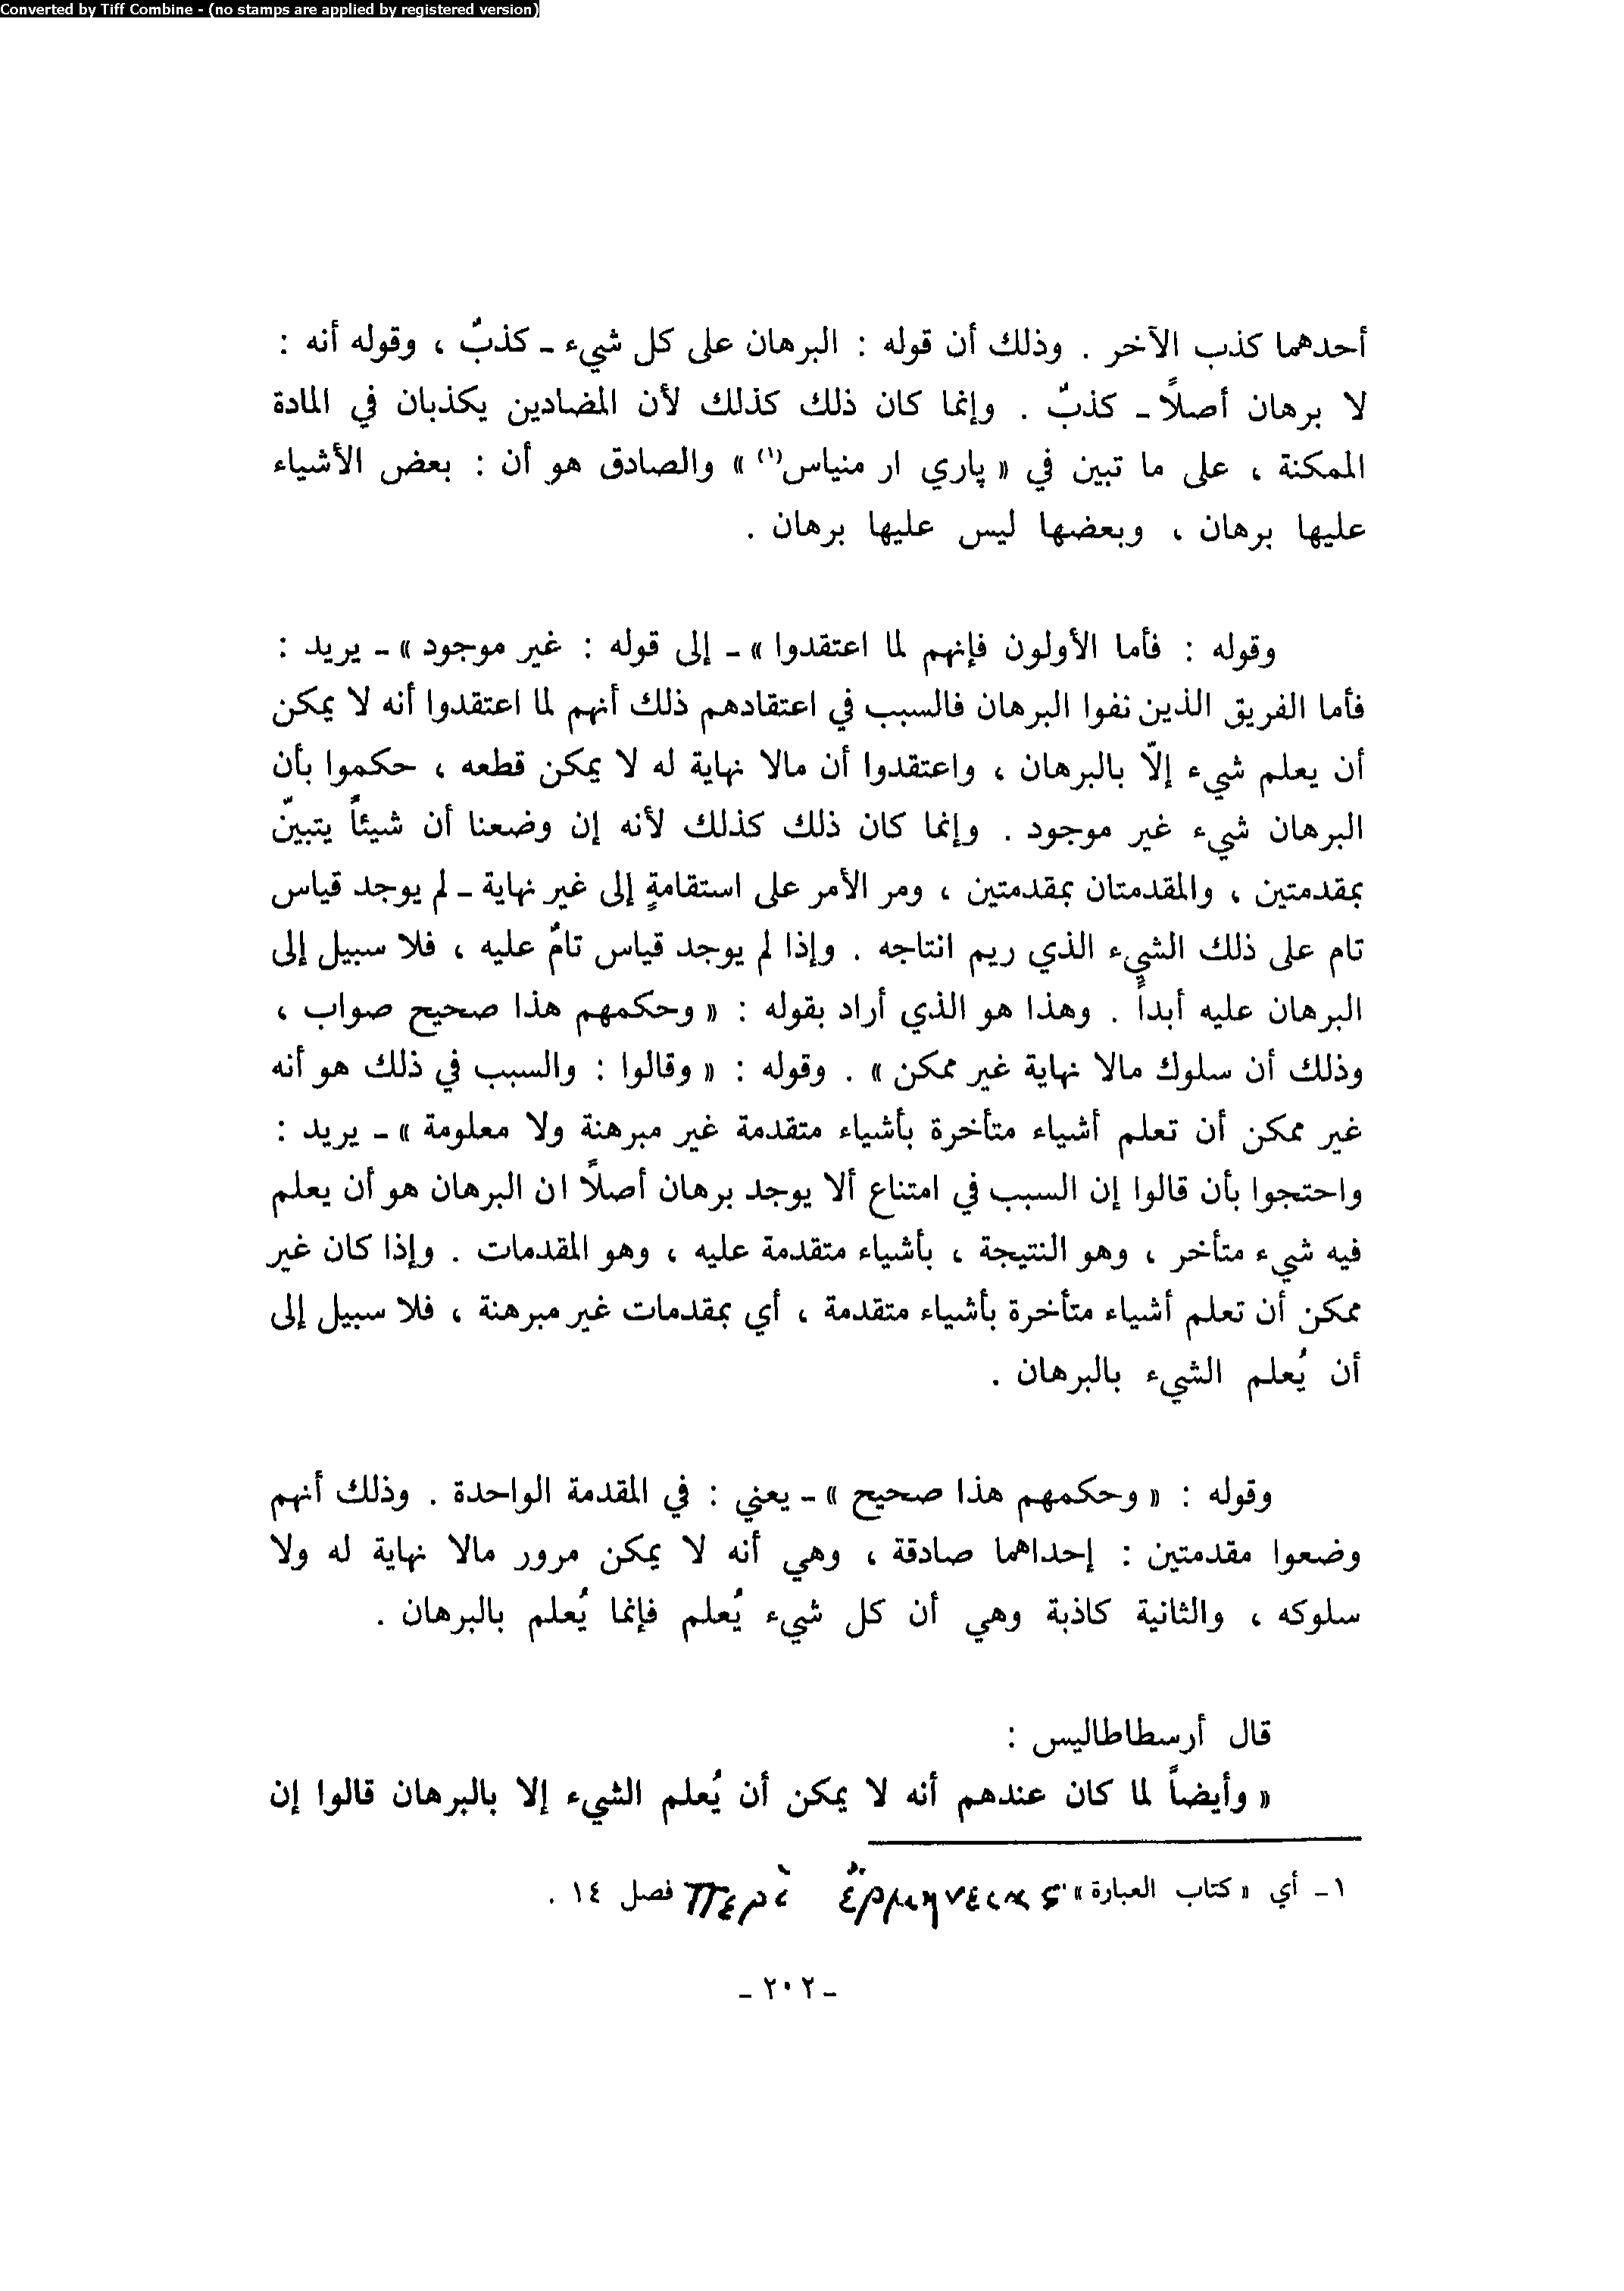 Converted by Tiff Combine - (no stamps are applied by registered version)
أحدهما كذب الآخر . وذلك أن قوله : البرهان على كل شيء ـ كذبٌ ، وقوله أنه :
لا برهان أصلاً ـ كذبٌ . وإنما كان ذلك كذلك لأن المضادين يكذبان في المادة
الممكنة ، على ما تبين في « پاري ار منياس(١) » والصادق هو أن : بعض الأشياء
عليها برهان ، وبعضها ليس عليها برهان .
وقوله : فأما الأولون فإنهم لما اعتقدوا » ـ إلى قوله : غير موجود » ـ يريد :
فأما الفريق الذين نفوا البرهان فالسبب في اعتقادهم ذلك أنهم لما اعتقدوا أنه لا يمكن
أن يعلم شيء إلّا بالبرهان ، واعتقدوا أن مالا نهاية له لا يمكن قطعه ، حكموا بأن
البرهان شيء غير موجود . وإنما كان ذلك كذلك لأنه إن وضعنا أن شيئاً يتبينّ
بمقدمتين ، والمقدمتان بمقدمتين ، ومر الأمر على استقامةٍ إلى غير نهاية ـ لم يوجد قياس
تام على ذلك الشيء الذي ريم انتاجه . وإذا لم يوجد قياس تامٌ عليه ، فلا سبيل إلى
البرهان عليه أبداً . وهذا هو الذي أراد بقوله : « وحكمهم هذا صحيح صواب ،
وذلك أن سلوك مالا نهاية غير ممكن » . وقوله : « وقالوا : والسبب في ذلك هو أنه
غير ممكن أن تعلم أشياء متأخرة بأشياء متقدمة غير مبرهنة ولا معلومة » ـ يريد :
واحتجوا بأن قالوا إن السبب في امتناع ألا يوجد برهان أصلاً ان البرهان هو أن يعلم
فيه شيء متأخر ، وهو النتيجة ، بأشياء متقدمة عليه ، وهو المقدمات . وإذا كان غير
ممكن أن تعلم أشياء متأخرة بأشياء متقدمة ، أي بمقدمات غير مبرهنة ، فلا سبيل إلى
أن يُعلم الشيء بالبرهان .
وقوله : « وحكمهم هذا صحيح » ـ يعني : في المقدمة الواحدة . وذلك أنهم
وضعوا مقدمتين : إحداهما صادقة ، وهي أنه لا يمكن مرور مالا نهاية له ولا
سلوكه ، والثانية كاذبة وهي أن كل شيء يُعلم فإنما يُعلم بالبرهان .
قال أرسطاطاليس :
« وأيضاً لما كان عندهم أنه لا يمكن أن يُعلم الشيء إلا بالبرهان قالوا إن
١ـ أي « كتاب العبارة » Περὶ ἑρμηνείας فصل ١٤ .
ـ ٢٠٢ ـ